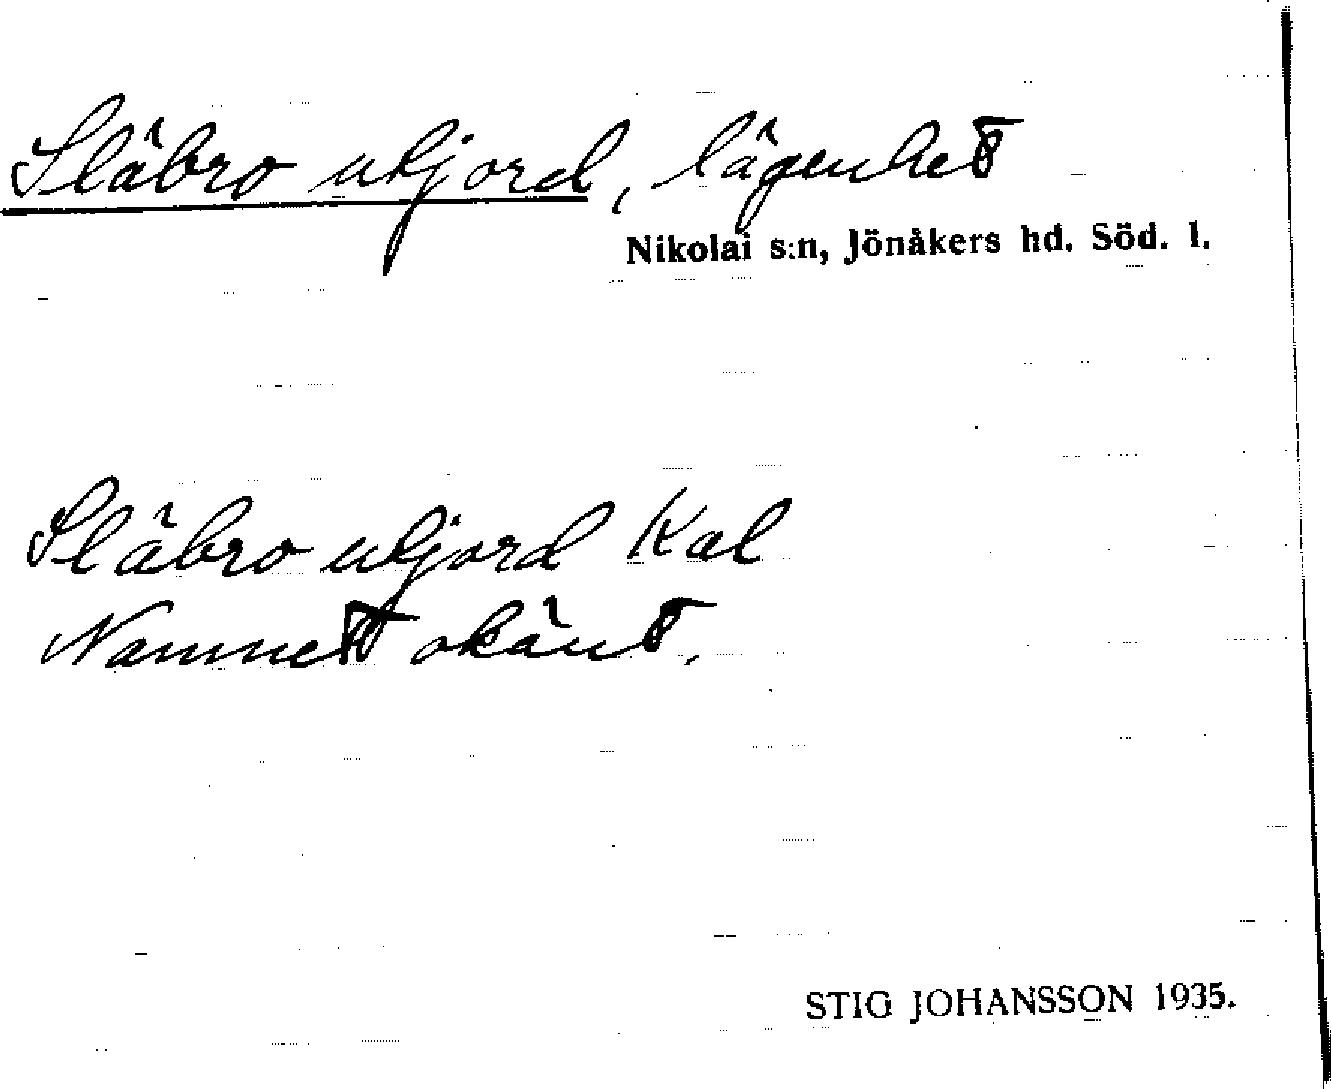 Släbro utjord, lägenhet
Nikolai s:n, Jönåkers hd. Söd. l.
Släbro utjord Kal
Namnet okänt.
STIG JOHANSSON 1935.